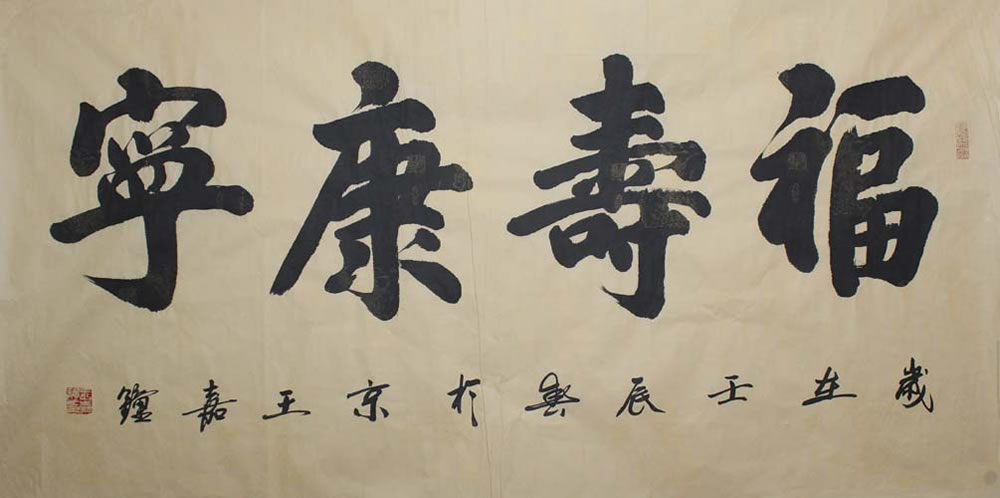 福壽康寧
歲在壬辰春於京王嘉鐘